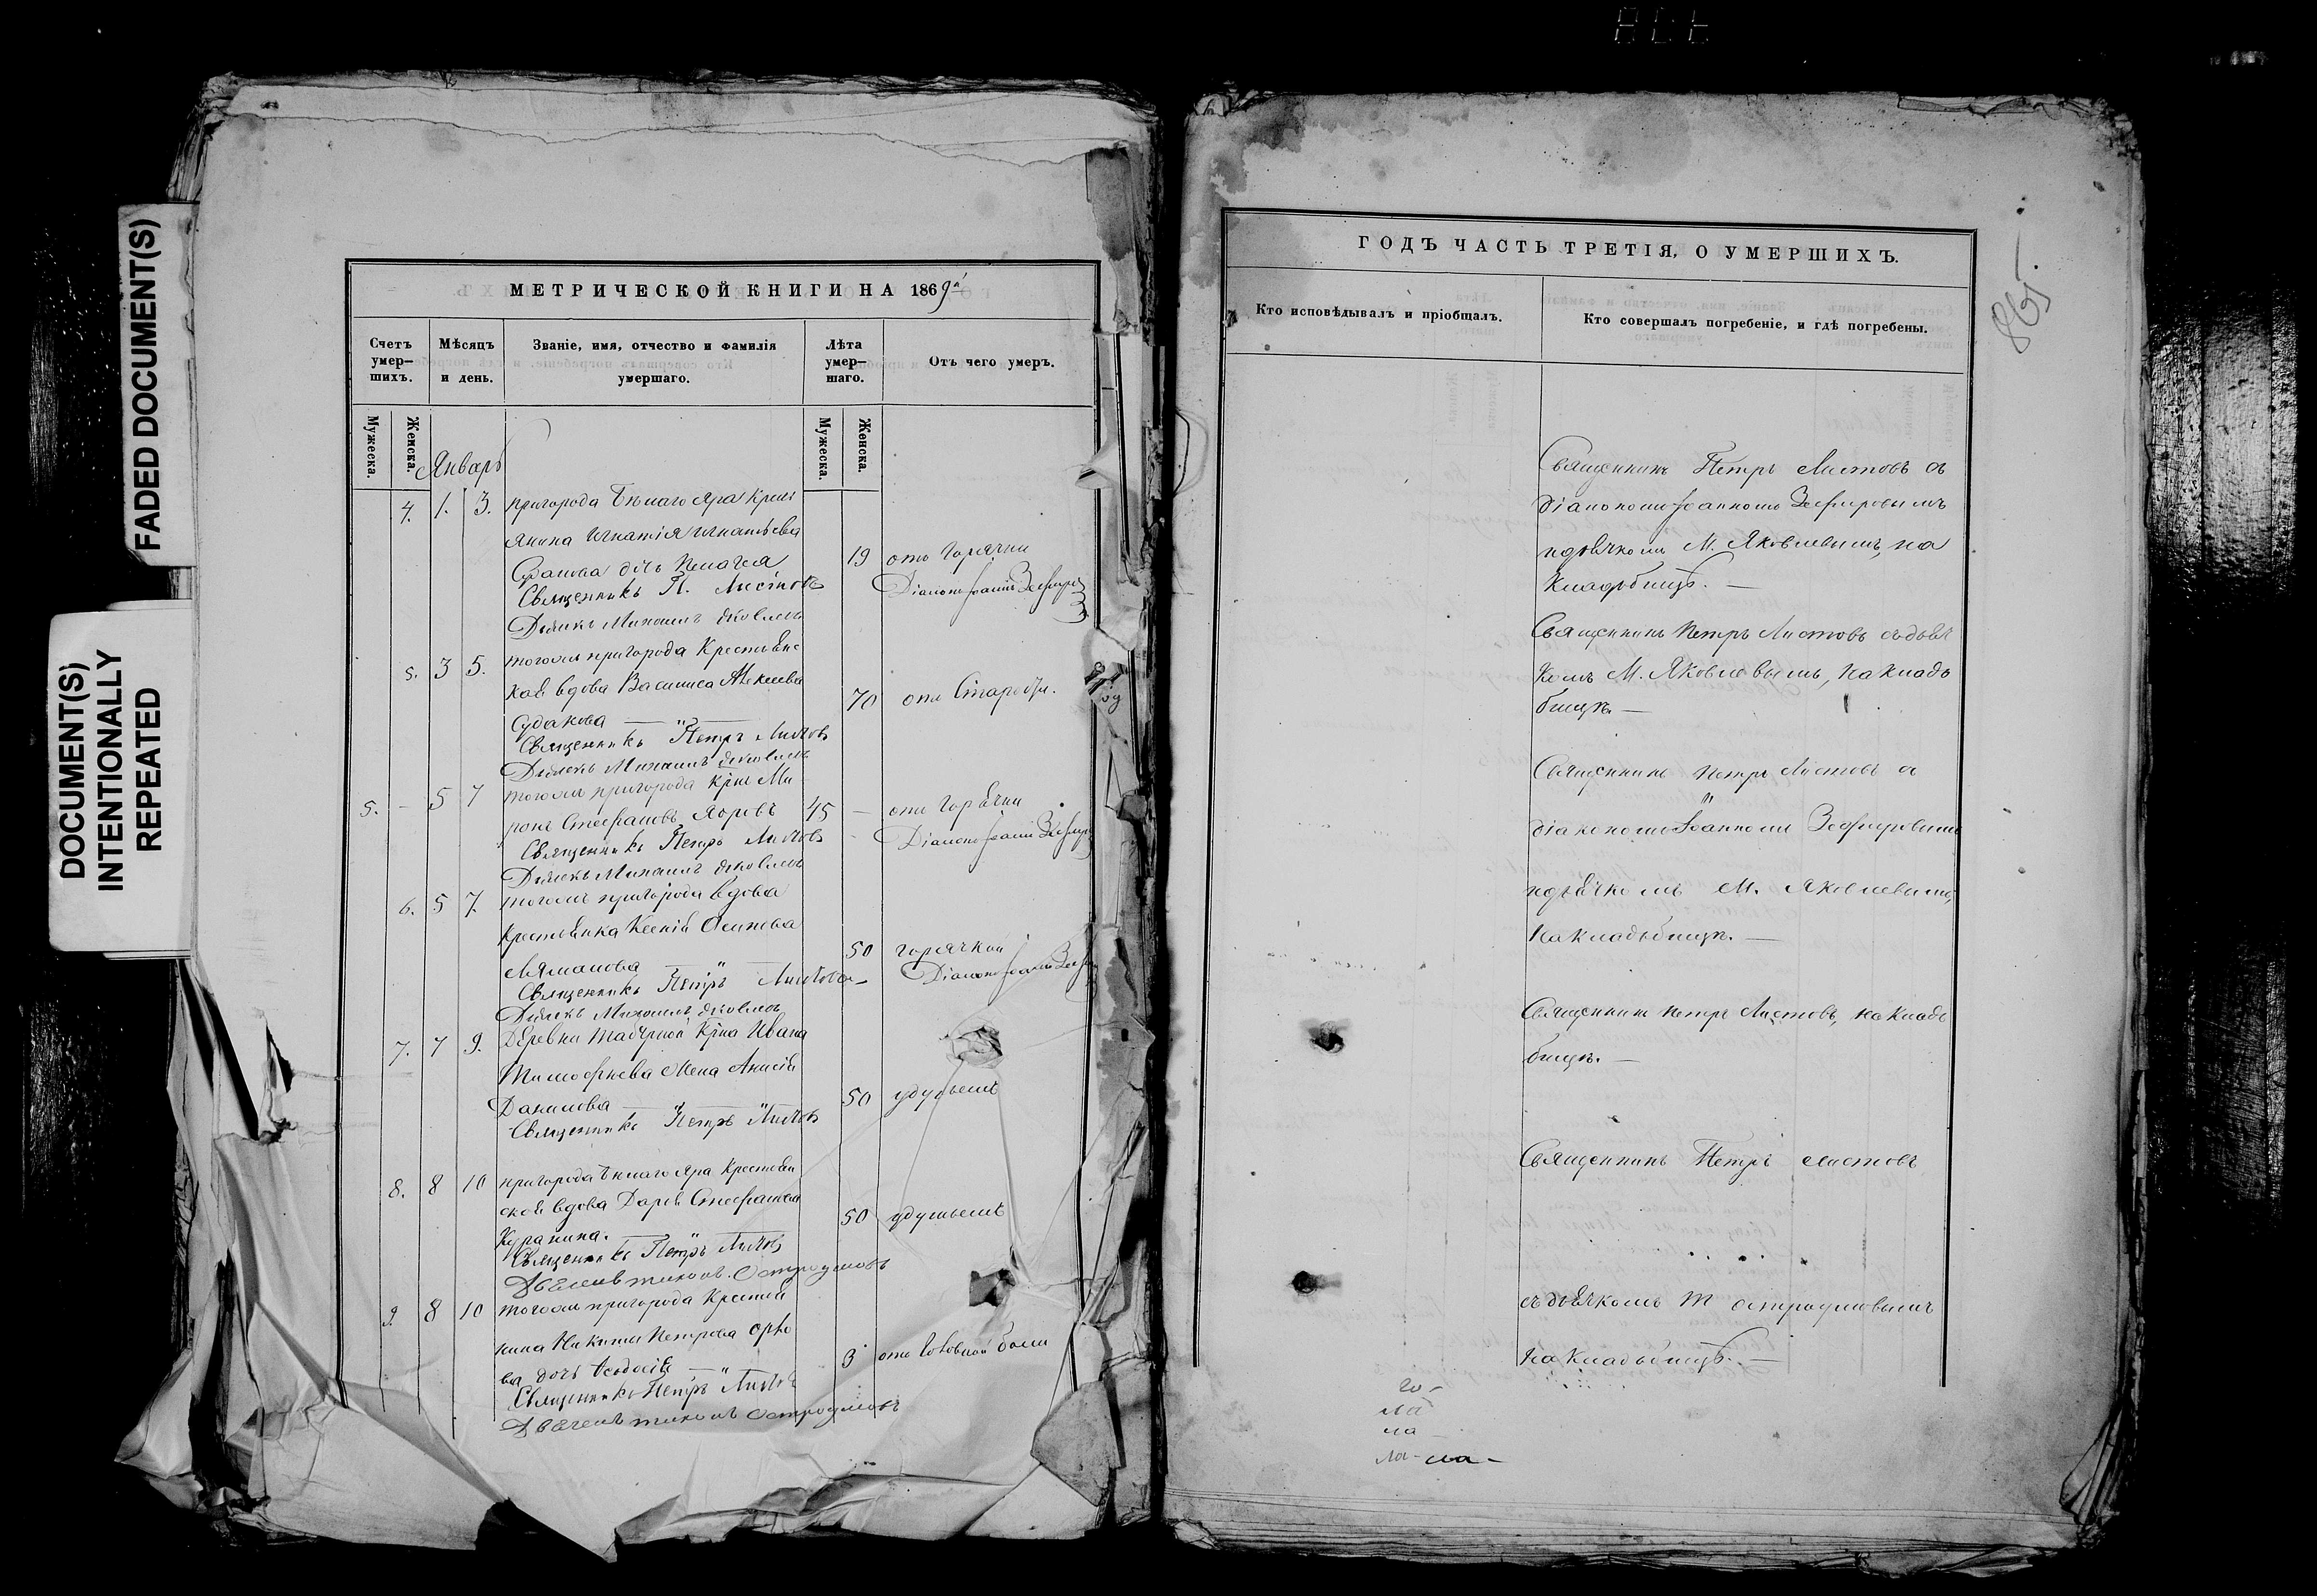 FADED DOCUMENT(S)
DOCUMENT(S)
INTENTIONALLY
REPEATED
МЕТРИЧЕСКОЙ КНИГИ НА 1869
Счетъ умер-шихъ.
Мѣсяцъ и день.
Званіе, имя, отчество и фамилія умершаго.
Лѣта умер-шаго.
Отъ чего умеръ.
Мужеска.
Женска.
Мужеска.
Женска.
Январь
4. 1. 3. пригорода Бѣлаго Яра Крестъ
янина Игнатія Игнатьева
дочь Пелагея 19 отъ Горячки
Священникъ П. Листовъ Діаконъ Іоаннъ Зефировъ
Дьячекъ Михаилъ Яковлевъ
5. 3 5. тогоже пригорода Крестьянс
кая вдова Василиса Алексеева 70 отъ Старости.
Судакова
Священникъ Петръ Листовъ
Дьячекъ Михаилъ Яковлевъ
5. - 5 7 тогоже пригорода Крест Ми
ронъ Стефановъ 45 - отъ Горячки
Священникъ Петръ Листовъ Діаконъ Іоаннъ Зефировъ
Дьячекъ Михаилъ Яковлевъ
6. 5 7. тогоже пригорода вдова
Крестьянка Ксенія Осипова
50 горячкой
Священникъ Петръ Листовъ Діаконъ Іоаннъ
Дьячекъ Михаилъ Яковлевъ
7. 7 9. Деревни Крна Ивана
Тимофѣева Жена Анисія
Данилова 50 удушьемъ
Священникъ Петръ Листовъ
8. 8 10 пригорода Бѣлаго Яра Крестьян
ская вдова Дарья Стефанова 50 удушьемъ
Куранина.
Священникъ Петръ Листовъ
Дьячекъ Тихонъ Остроумовъ
9. 8 10 тогоже пригорода Крестья
нина Никиты Петрова
дочь Ѳеодосія 3 отъ Головной боли
Священникъ Петръ Листовъ
Дьячекъ Тихонъ Остроумовъ
ГОДЪ ЧАСТЬ ТРЕТІЯ, О УМЕРШИХЪ.
865.
Кто исповѣдывалъ и пріобщалъ.
Кто совершалъ погребеніе, и гдѣ погребены.
Священникъ Петръ Листовъ съ
діакономъ Іоанномъ Зефировымъ
идьячкомъ М. Яковлевымъ, на
Кладбищѣ.
Священникъ Петръ Листовъ съдьяч
комъ М. Яковлевымъ, на кладъ
бищѣ.
Священникъ Петръ Листовъ съ
діакономъ Іоанномъ Зефировымъ
идьячкомъ М. Яковлевымъ,
На Кладьбищѣ.
Священникъ Петръ Листовъ, на кладь
бищѣ.
Священникъ Петръ Листовъ
съ дьячкомъ Т Остроумовымъ
На Кладьбищѣ.